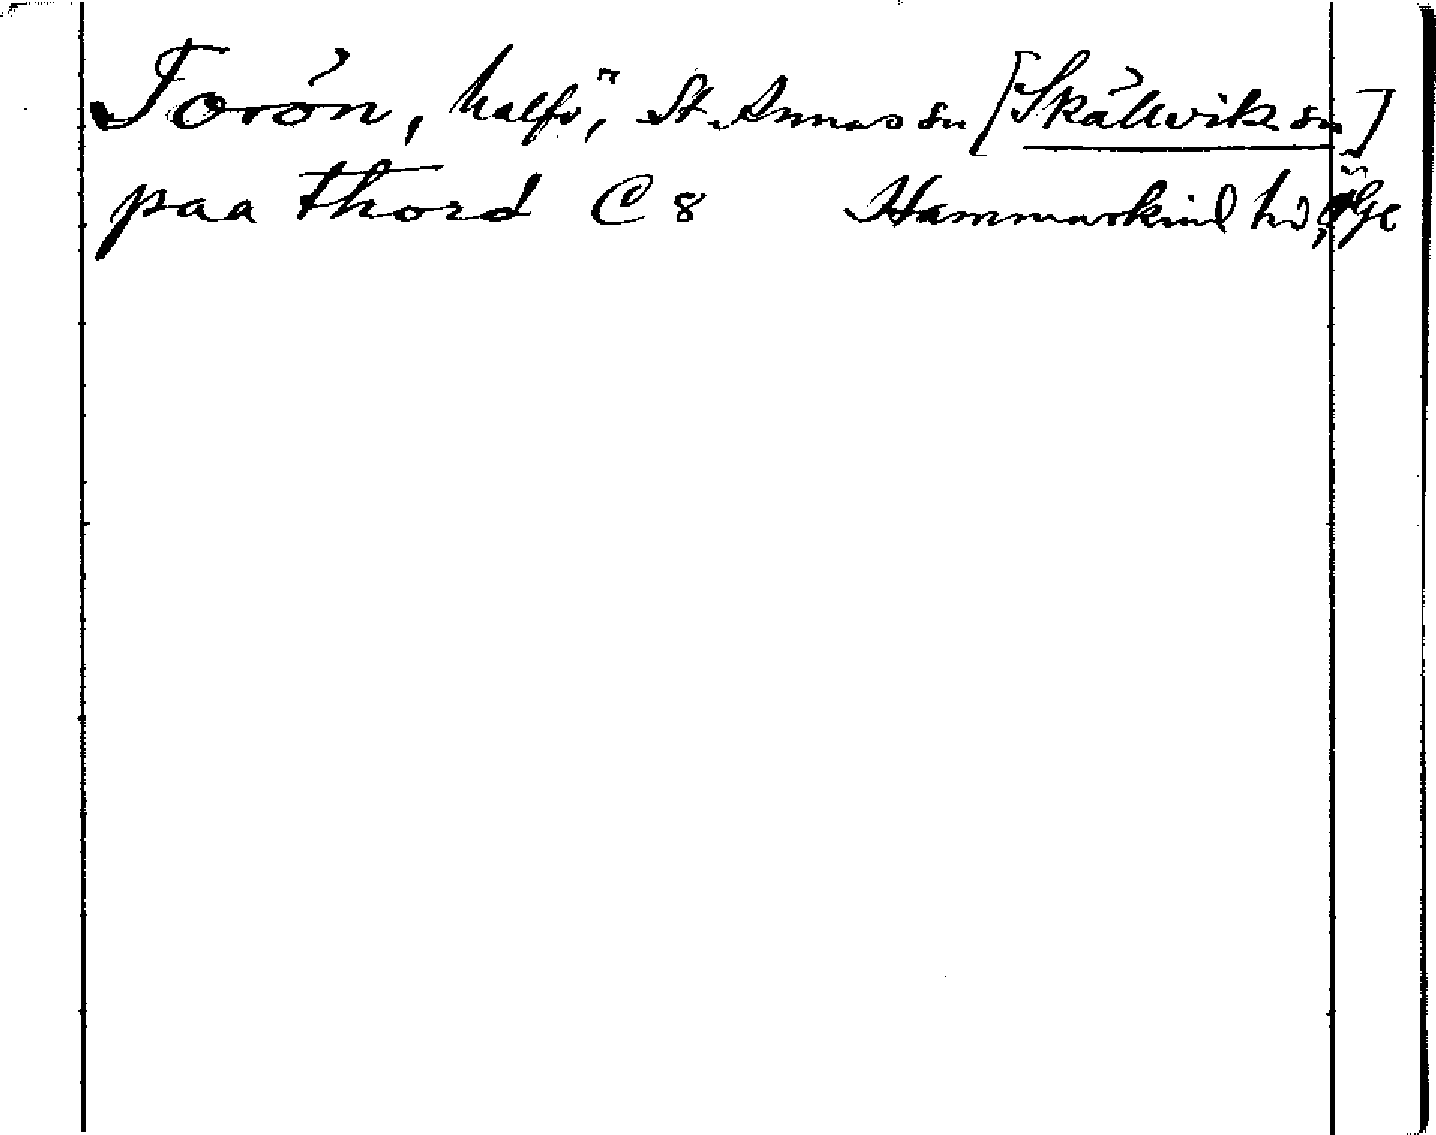 Torön, halfö, St. Annas sn [Skällvik sn]
paa thord C 8 Hammarkind hd, ÖGe